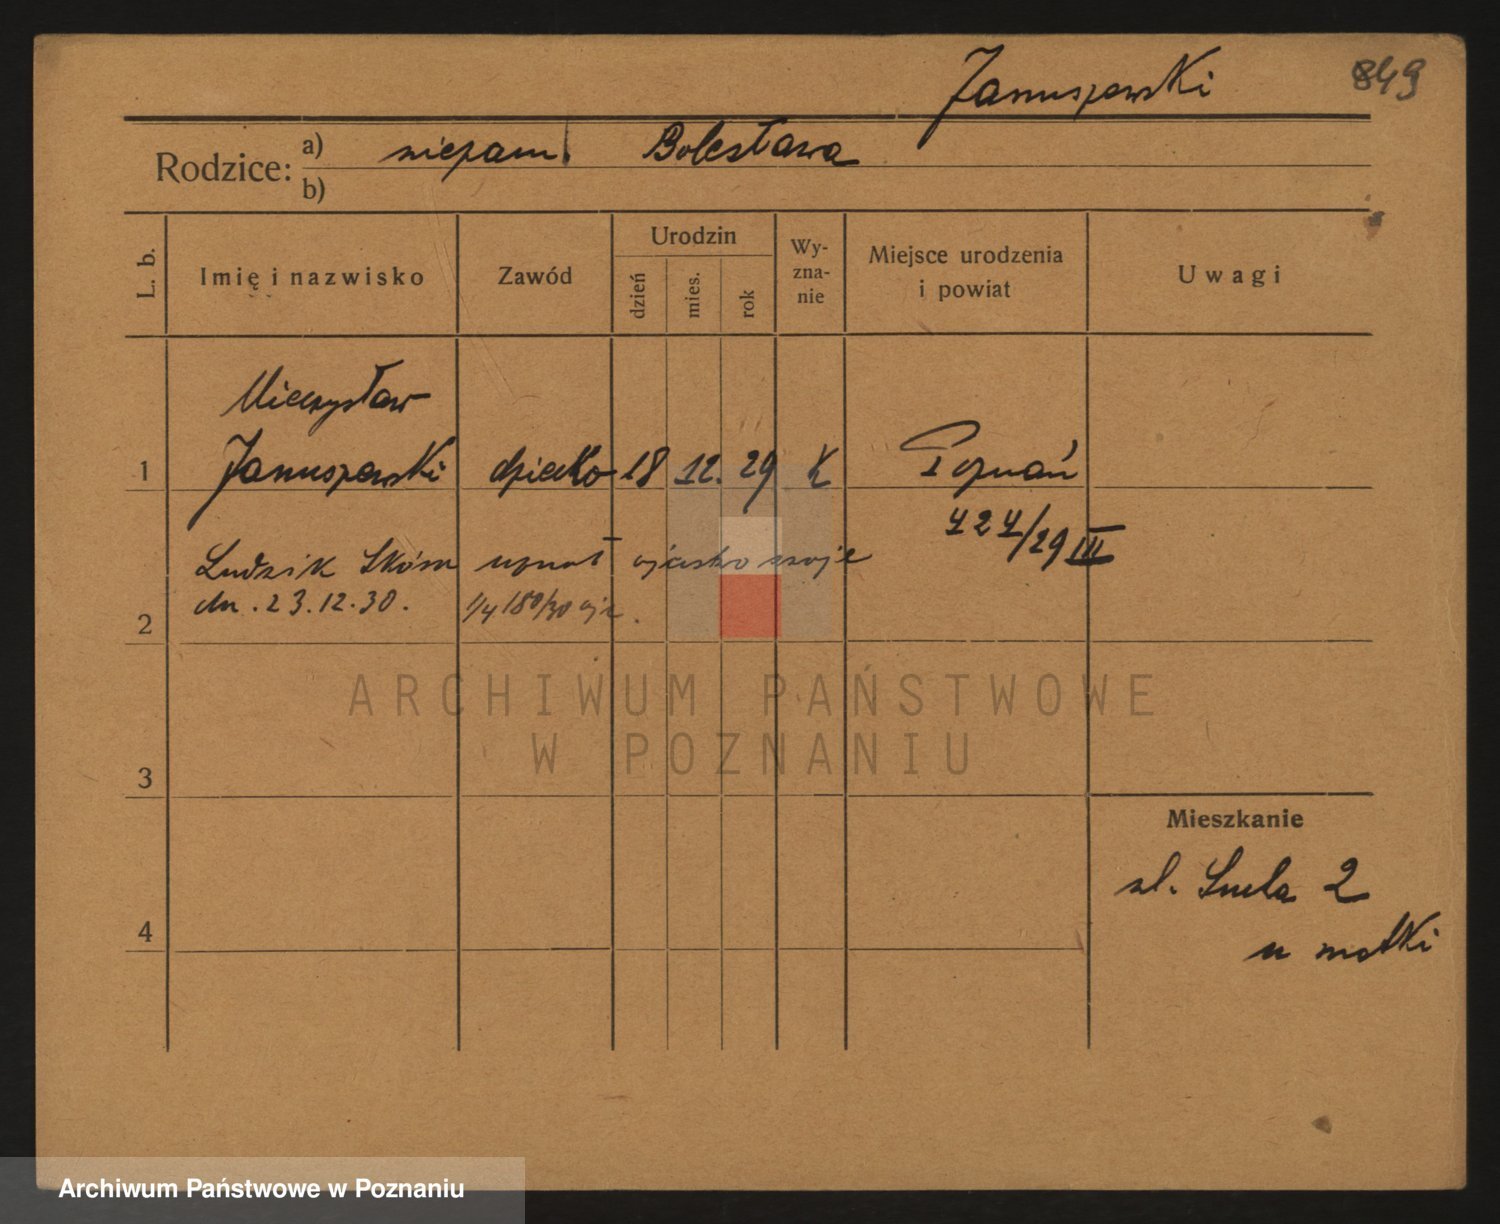 Januszewski 849
Rodzice: a) niezam. Bolesława
b)
L. b. Imię i nazwisko Zawód Urodzin dzień mies. rok Wy-zna-nie Miejsce urodzenia i powiat Uwagi
Mieczysław
1 Januszewski dziecko 18 12. 29 K Poznań
424/29 III
Ludzik Skóra uznał ojcostwo swoje
2 dn. 23.12.30.
3
ARCHIWUM PAŃSTWOWE
W POZNANIU
Mieszkanie
ul. 2
4 u matki
Archiwum Państwowe w Poznaniu